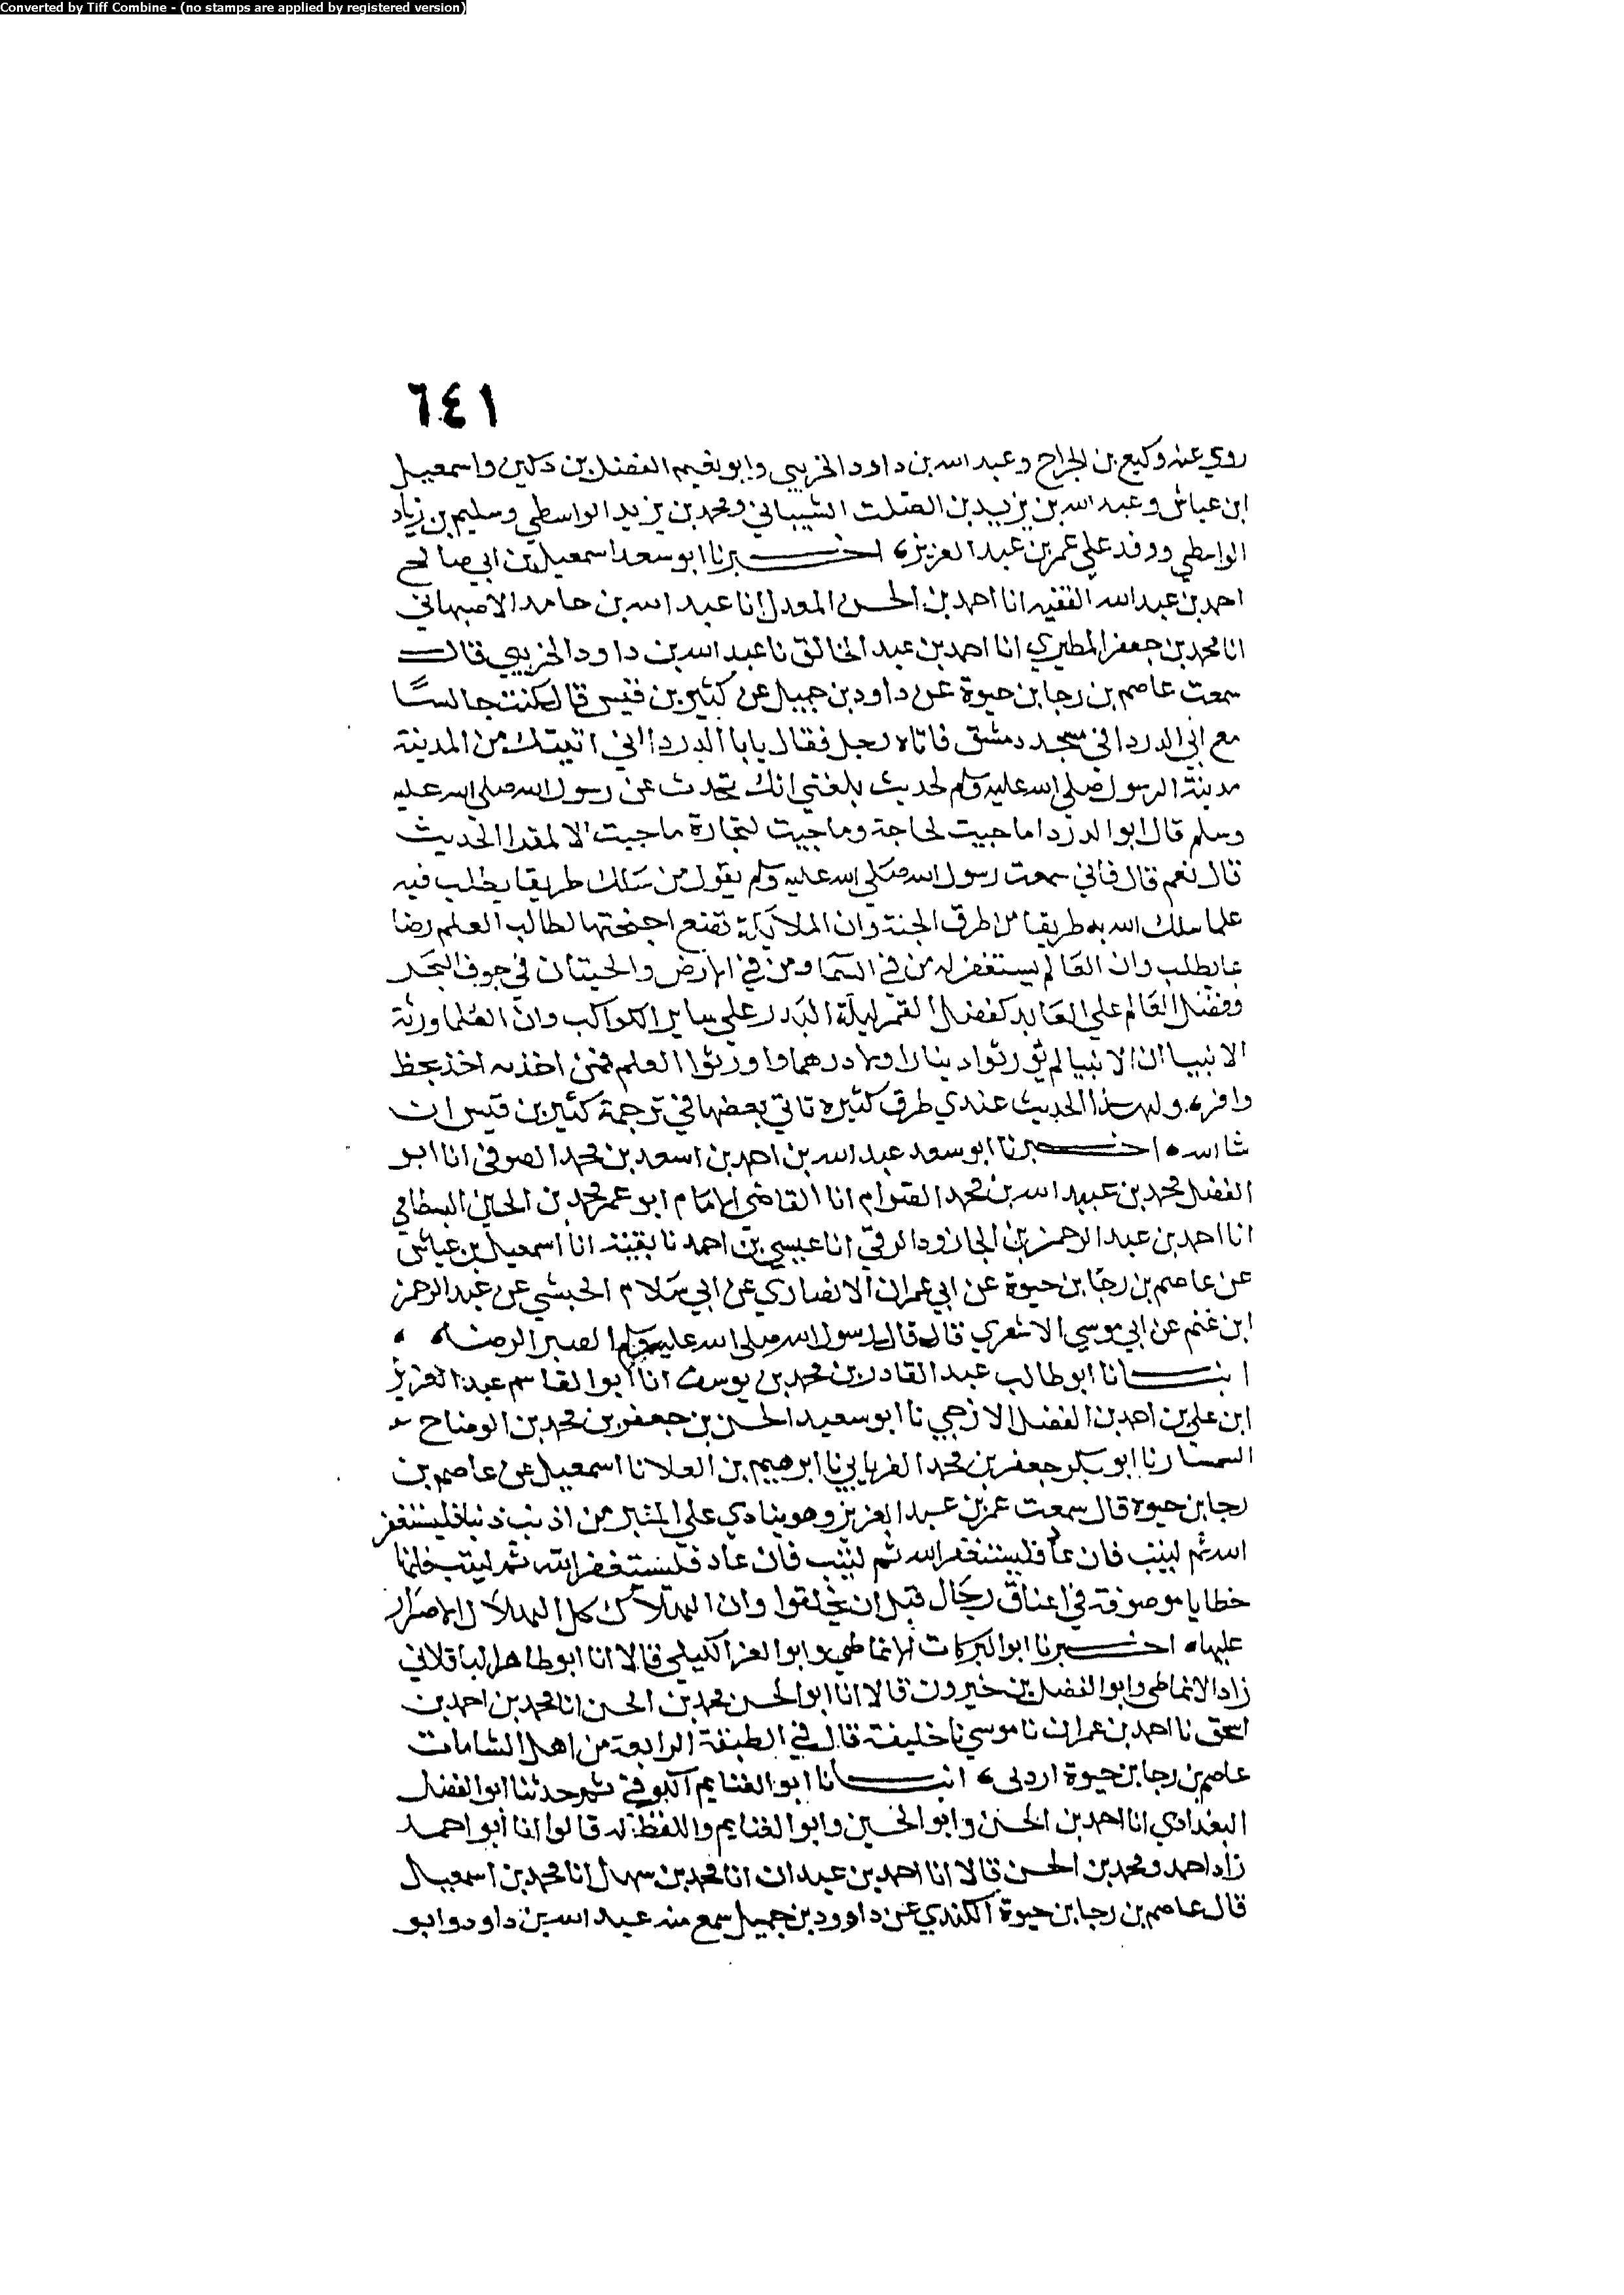 Converted by Tiff Combine - (no stamps are applied by registered version)
٦٤١
روي عنه وكيع بن الجراح وعبد الله بن داود الخريبي وابو نعيم الفضل بن دكين واسمعيل
ابن عياش وعبد الله بن يزيد بن الصلت الشيباني ومحمد بن يزيد الواسطي وسليم بن زياد
الواسطي ووفد علي عمر بن عبد العزيز، اخبرنا ابو سعد اسمعيل بن ابي صالح
احمد بن عبد الله الفقيه انا احمد بن الحسن المعدل انا عبد الله بن حامد الاصبهاني
انا محمد بن جعفر المطيري انا احمد بن عبد الخالق نا عبد الله بن داود الخريبي قال
سمعت عاصم بن رجا بن حيوة عن داود بن جميل عن كثير بن قيس قال كنت جالسًا
مع ابي الدردا في مسجد دمشق فاتاه رجل فقال يابا الدردا اني اتيتك من المدينة
مدينة الرسول صلي الله عليه وسلم لحديث بلغني انك تحدث عن رسول الله صلي الله عليه
وسلم قال ابو الدردا ما جيت لحاجة وما جيت لتجارة ما جيت الا لهذا الحديث
قال نعم قال فاني سمعت رسول الله صلي الله عليه وسلم يقول من سلك طريقا يطلب فيه
علما سلك الله به طريقا من طرق الجنة وان الملايكة تضع اجنحتها لطالب العلم رضا
بما يطلب وان العالم يستغفر له من في السما ومن في الارض والحيتان في جوف البحر
وفضل العالم علي العابد كفضل القمر ليلة البدر علي ساير الكواكب وان العلما ورثة
الانبيا ان الانبيا لم يورثوا دينارا ولا درهما واورثوا العلم فمن اخذ به اخذ بحظ
وافر، ولهذا الحديث عندي طرق كثيره تاتي بعضها في ترجمة كثير بن قيس ان
شا الله اخبرنا ابو سعد عبد الله بن احمد بن اسعد بن محمد الصوفي انا ابو
الفضل محمد بن عبيد الله بن محمد الصرام انا القاضي الامام ابو عمر محمد بن الحسين البسطامي
انا احمد بن عبد الرحمن بن الجارود الرقي انا عيسي بن احمد نا بقية انا اسمعيل بن عياش
عن عاصم بن رجا بن حيوة عن ابي عمران الانصاري عن ابي سلام الحبشي عن عبد الرحمن
ابن غنم عن ابي موسي الاشعري قال قال رسول الله صلي الله عليه وسلم الصبر الرضا
انبانا ابو طالب عبد القادر بن محمد بن يوسف انا ابو القاسم عبد العزيز
ابن علي بن احمد بن الفضل الازجي نا ابو سعيد الحسن بن جعفر بن محمد بن الوضاح
السمسار نا ابو بكر جعفر بن محمد الفريابي نا ابرهيم بن العلا نا اسمعيل عن عاصم بن
رجا بن حيوة قال سمعت عمر بن عبد العزيز وهو ينادي علي المنبر من اذنب ذنبا فليستغفر
الله ثم ليتب فان عاد فليستغفر الله ثم ليتب فان عاد فليستغفر الله ثم ليتب فانما
خطايا موصوفة في اعناق رجال قبل ان يخلقوا وان الهلاك كل الهلاك الاصرار
عليها، اخبرنا ابو البركات الانماطي وابو العز الكيلي قالا انا ابو طاهر الباقلاني
زاد الانماطي وابو الفضل بن خيرون قالا انا ابو الحسن محمد بن الحسن انا محمد بن احمد بن
اسحق نا احمد بن عمران نا موسي نا خليفة قال في الطبقة الرابعة من اهل الشامات
عاصم بن رجا بن حيوة اردني، انبانا ابو الغنايم الكوفي ثم حدثنا ابو الفضل
البغدادي انا احمد بن الحسن وابو الحسين وابو الغنايم واللفظ له قالوا انا ابو احمد
زاد احمد ومحمد بن الحسن قالا انا احمد بن عبدان انا محمد بن سهل انا محمد بن اسمعيل
قال عاصم بن رجا بن حيوة الكندي عن داوود بن جميل سمع منه عبد الله بن داود وابو